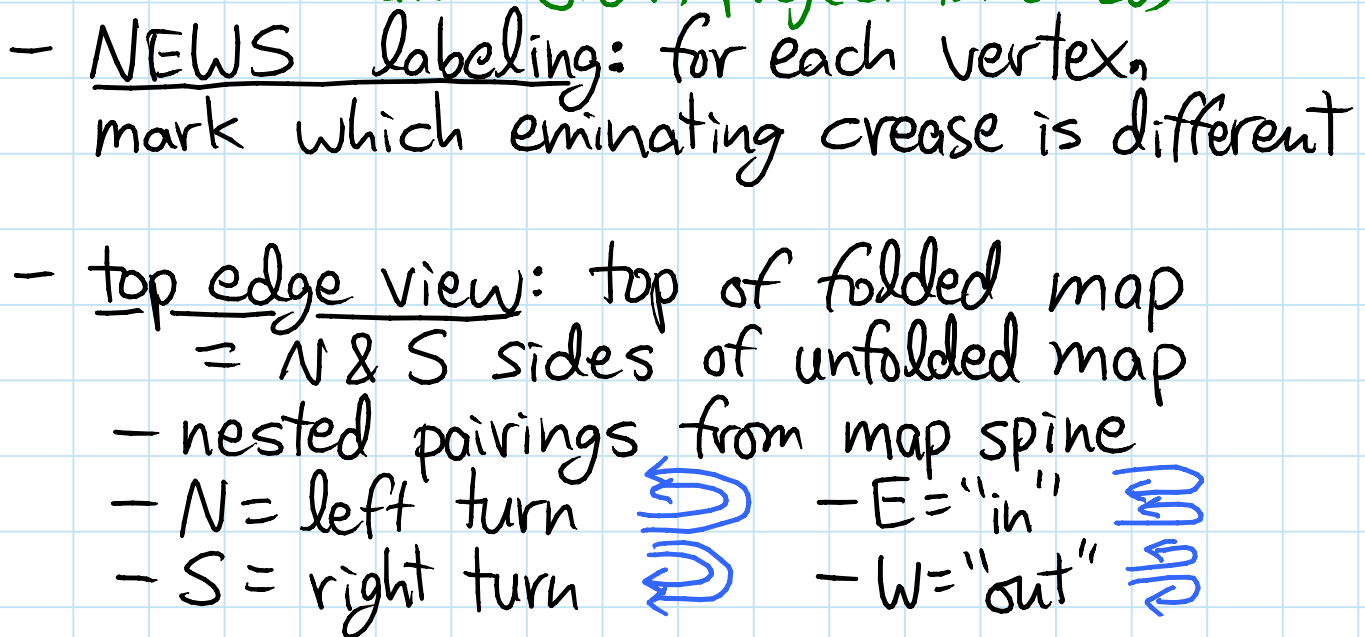 - NEWS labeling: for each vertex,
mark which eminating crease is different
- top edge view: top of folded map
= N & S sides of unfolded map
- nested pairings from map spine
- N = left turn - E = "in"
- S = right turn - W = "out"